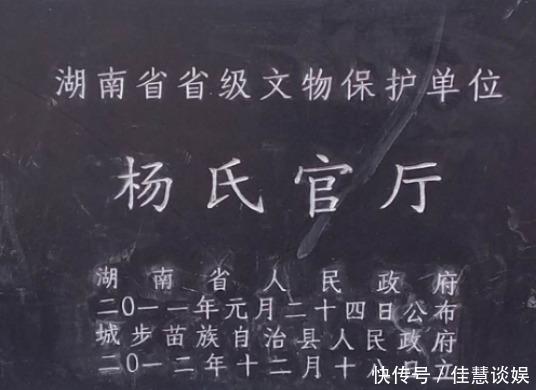 湖南省省级文物保护单位
杨氏官厅
湖南省人民政府
二〇一一年元月二十四日公布
城步苗族自治县人民政府
二〇一二年十二月十八日立
快传号/佳慧谈娱